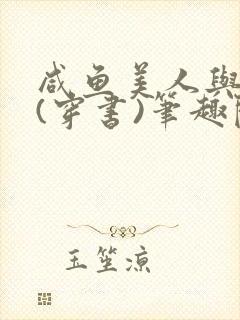 咸鱼美人與
(穿書)筆趣
玉笙涼